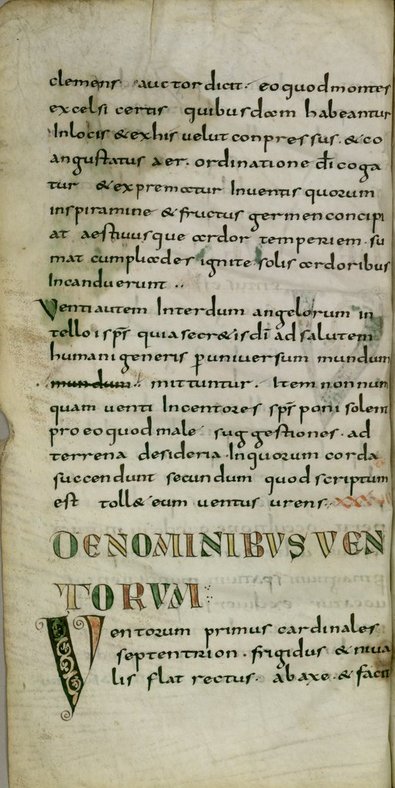 clemens auctor dicit. eo quod montes
excelsi certis quibusdam habeantur
In locis & ex his velut conpressus. & co
angustatus aer. ordinatione d̄i coga
tur & exprematur Inventis quorum
inspiramine & fructus germen concipi
at aestiuusque ardor temperiem su
mat cum pliades ignite solis ardoribus
Incanduerunt ..
Venti autem Interdum angelorum in
tello i sp̄s quia secr&is d̄i ad salutem
humani generis ꝑ universum mundum
mundum mittuntur. Item non nun
quam venti Incentores sp̄s poni solent
pro eo quod male suggestiones. ad
terrena desideria. Inquorum corda
succendunt secundum quod scriptum
est toll& eum ventus urens.
DE NOMINIBVS VEN
TORVM
Ventorum primus cardinales
septentrion. frigidus & niua
lis flat rectus. ab axe. & facit